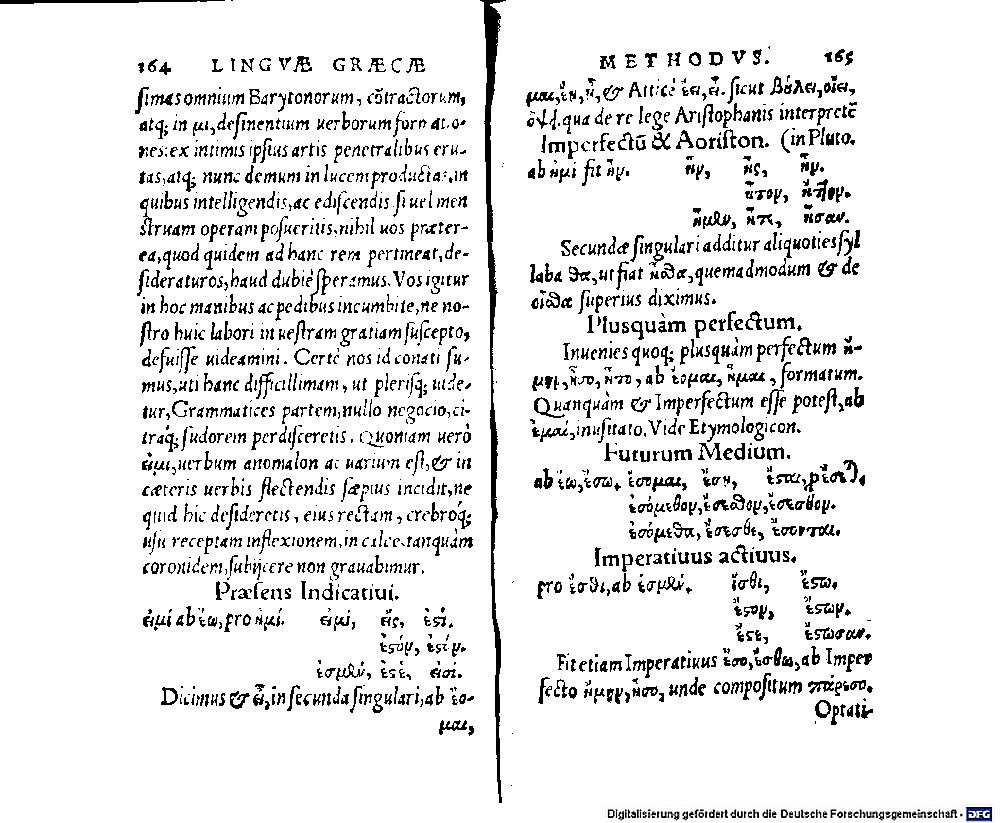 164 LINGVÆ GRÆCÆ
simas omnium Barytonorum, cōtractorum,
atq; in μι, desinentium uerborum formatio-
nes: ex intimis ipsius artis penetralibus eru-
tas, atq; nunc demum in lucem productas. in
quibus intelligendis, ac ediscendis si uel men
struam operam posueritis, nihil uos præter-
ea, quod quidem ad hanc rem pertineat, de-
sideraturos, haud dubiè speramus. Vos igitur
in hoc manibus ac pedibus incumbite, ne no-
stro huic labori in uestram gratiam suscepto,
defuisse uideamini. Certè nos id conati su-
mus, uti hanc difficillimam, ut plerisq; uide-
tur, Grammatices partem, nullo negocio, ci-
traq́; sudorem perdisceretis. Quoniam uerò
εἰμί, uerbum anomalon ac uarium est, & in
cæteris uerbis flectendis sæpius incidit, ne
quid hic desideretis, eius rectam, crebroq́;
usu receptam inflexionem, in calce tanquàm
coronidem, subijcere non grauabimur.
Præsens Indicatiui.
εἰμί ab ἔω, pro ἠμί. εἰμί, εἶς, ἐστί.
ἐστόν, ἐστόν.
ἐσμὲν, ἐστὲ, εἰσί.
Dicimus & εἶ, in secunda singulari, ab ἔο-
μαι,
METHODVS. 165
μαι, ἔῃ, ᾖ, & Atticè ἔει, εἶ. sicut βούλει, οἴει,
ὄψει. qua de re lege Aristophanis interpretē
Imperfectū & Aoriston. (in Pluto.
ab ἠμί fit ἦν. ἦν, ἦς, ἦν.
ἦτον, ἤτην.
ἦμεν, ἦτε, ἦσαν.
Secundæ singulari additur aliquoties syl
laba θα, ut fiat ἦσθα, quemadmodum & de
οἶσθα superius diximus.
Plusquàm perfectum.
Inuenies quoq; plusquàm perfectum ἤ-
μην, ἦσο, ἦτο, ab ἔομαι, ἦμαι, formatum.
Quanquàm & Imperfectum esse potest, ab
ἐμαί, inusitato. Vide Etymologicon.
Futurum Medium.
ab ἔω, ἔσω. ἔσομαι, ἔσῃ,
ἐσόμεθον, ἔσεσθον, ἔσεσθον.
ἐσόμεθα, ἔσεσθε, ἔσονται.
Imperatiuus actiuus.
pro ἔσθι, ab ἐσμέν. ἴσθι, ἔστω.
ἔστον, ἔστων.
ἔστε, ἔστωσαν.
Fit etiam Imperatiuus ἔσο, ἔσθω, ab Imper
fecto ἤμην, ἦσο, unde compositum πάρεσο.
Optati-
Digitalisierung gefördert durch die Deutsche Forschungsgemeinschaft - DFG